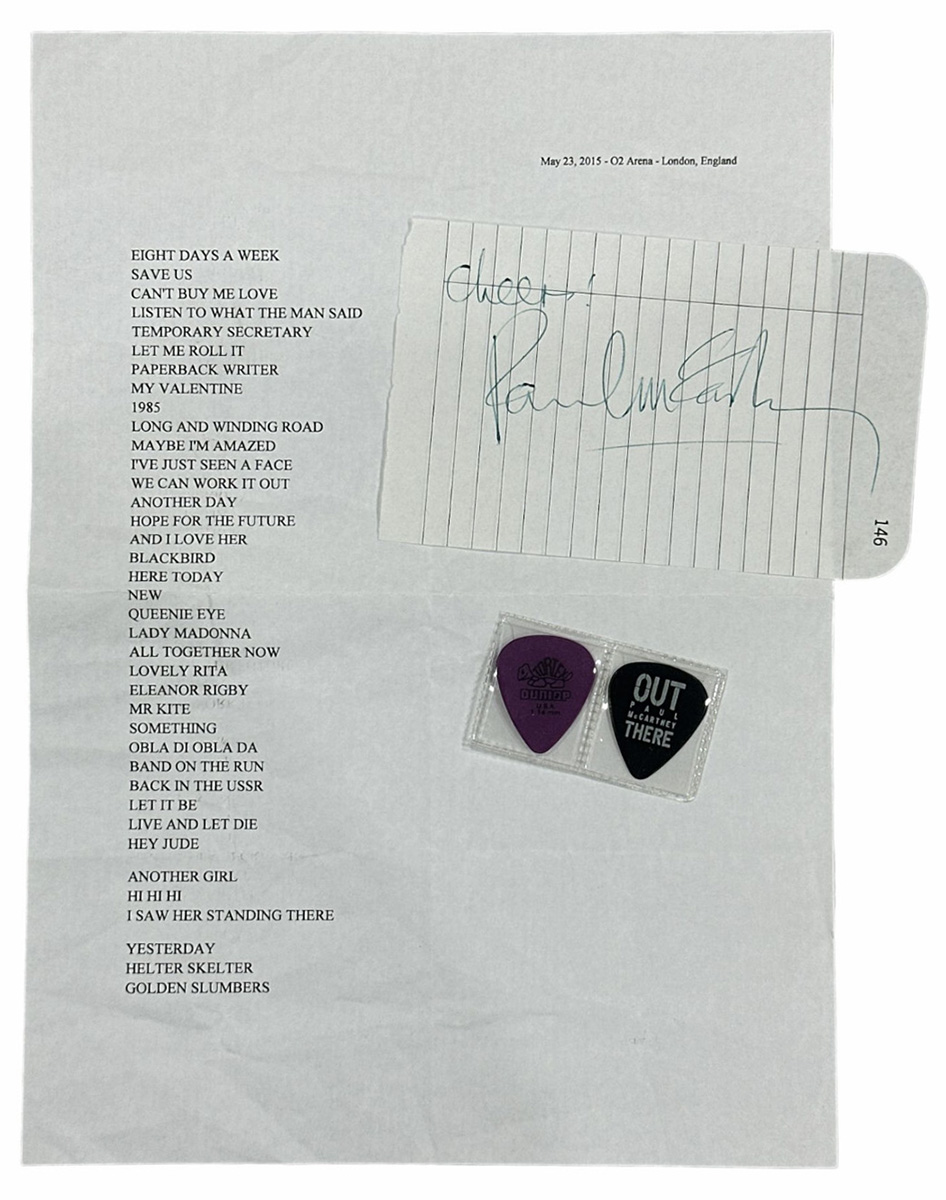 May 23, 2015 - O2 Arena - London, England
EIGHT DAYS A WEEK
SAVE US
CAN'T BUY ME LOVE
LISTEN TO WHAT THE MAN SAID
TEMPORARY SECRETARY
LET ME ROLL IT
PAPERBACK WRITER
MY VALENTINE
1985
LONG AND WINDING ROAD
MAYBE I'M AMAZED
I'VE JUST SEEN A FACE
WE CAN WORK IT OUT
ANOTHER DAY
HOPE FOR THE FUTURE
AND I LOVE HER
BLACKBIRD
HERE TODAY
NEW
QUEENIE EYE
LADY MADONNA
ALL TOGETHER NOW
LOVELY RITA
ELEANOR RIGBY
MR KITE
SOMETHING
OBLA DI OBLA DA
BAND ON THE RUN
BACK IN THE USSR
LET IT BE
LIVE AND LET DIE
HEY JUDE
ANOTHER GIRL
HI HI HI
I SAW HER STANDING THERE
YESTERDAY
HELTER SKELTER
GOLDEN SLUMBERS
Cheers!
Paul McCartney
146
TORTEX
DUNLOP
USA
OUT
PAUL
McCARTNEY
THERE